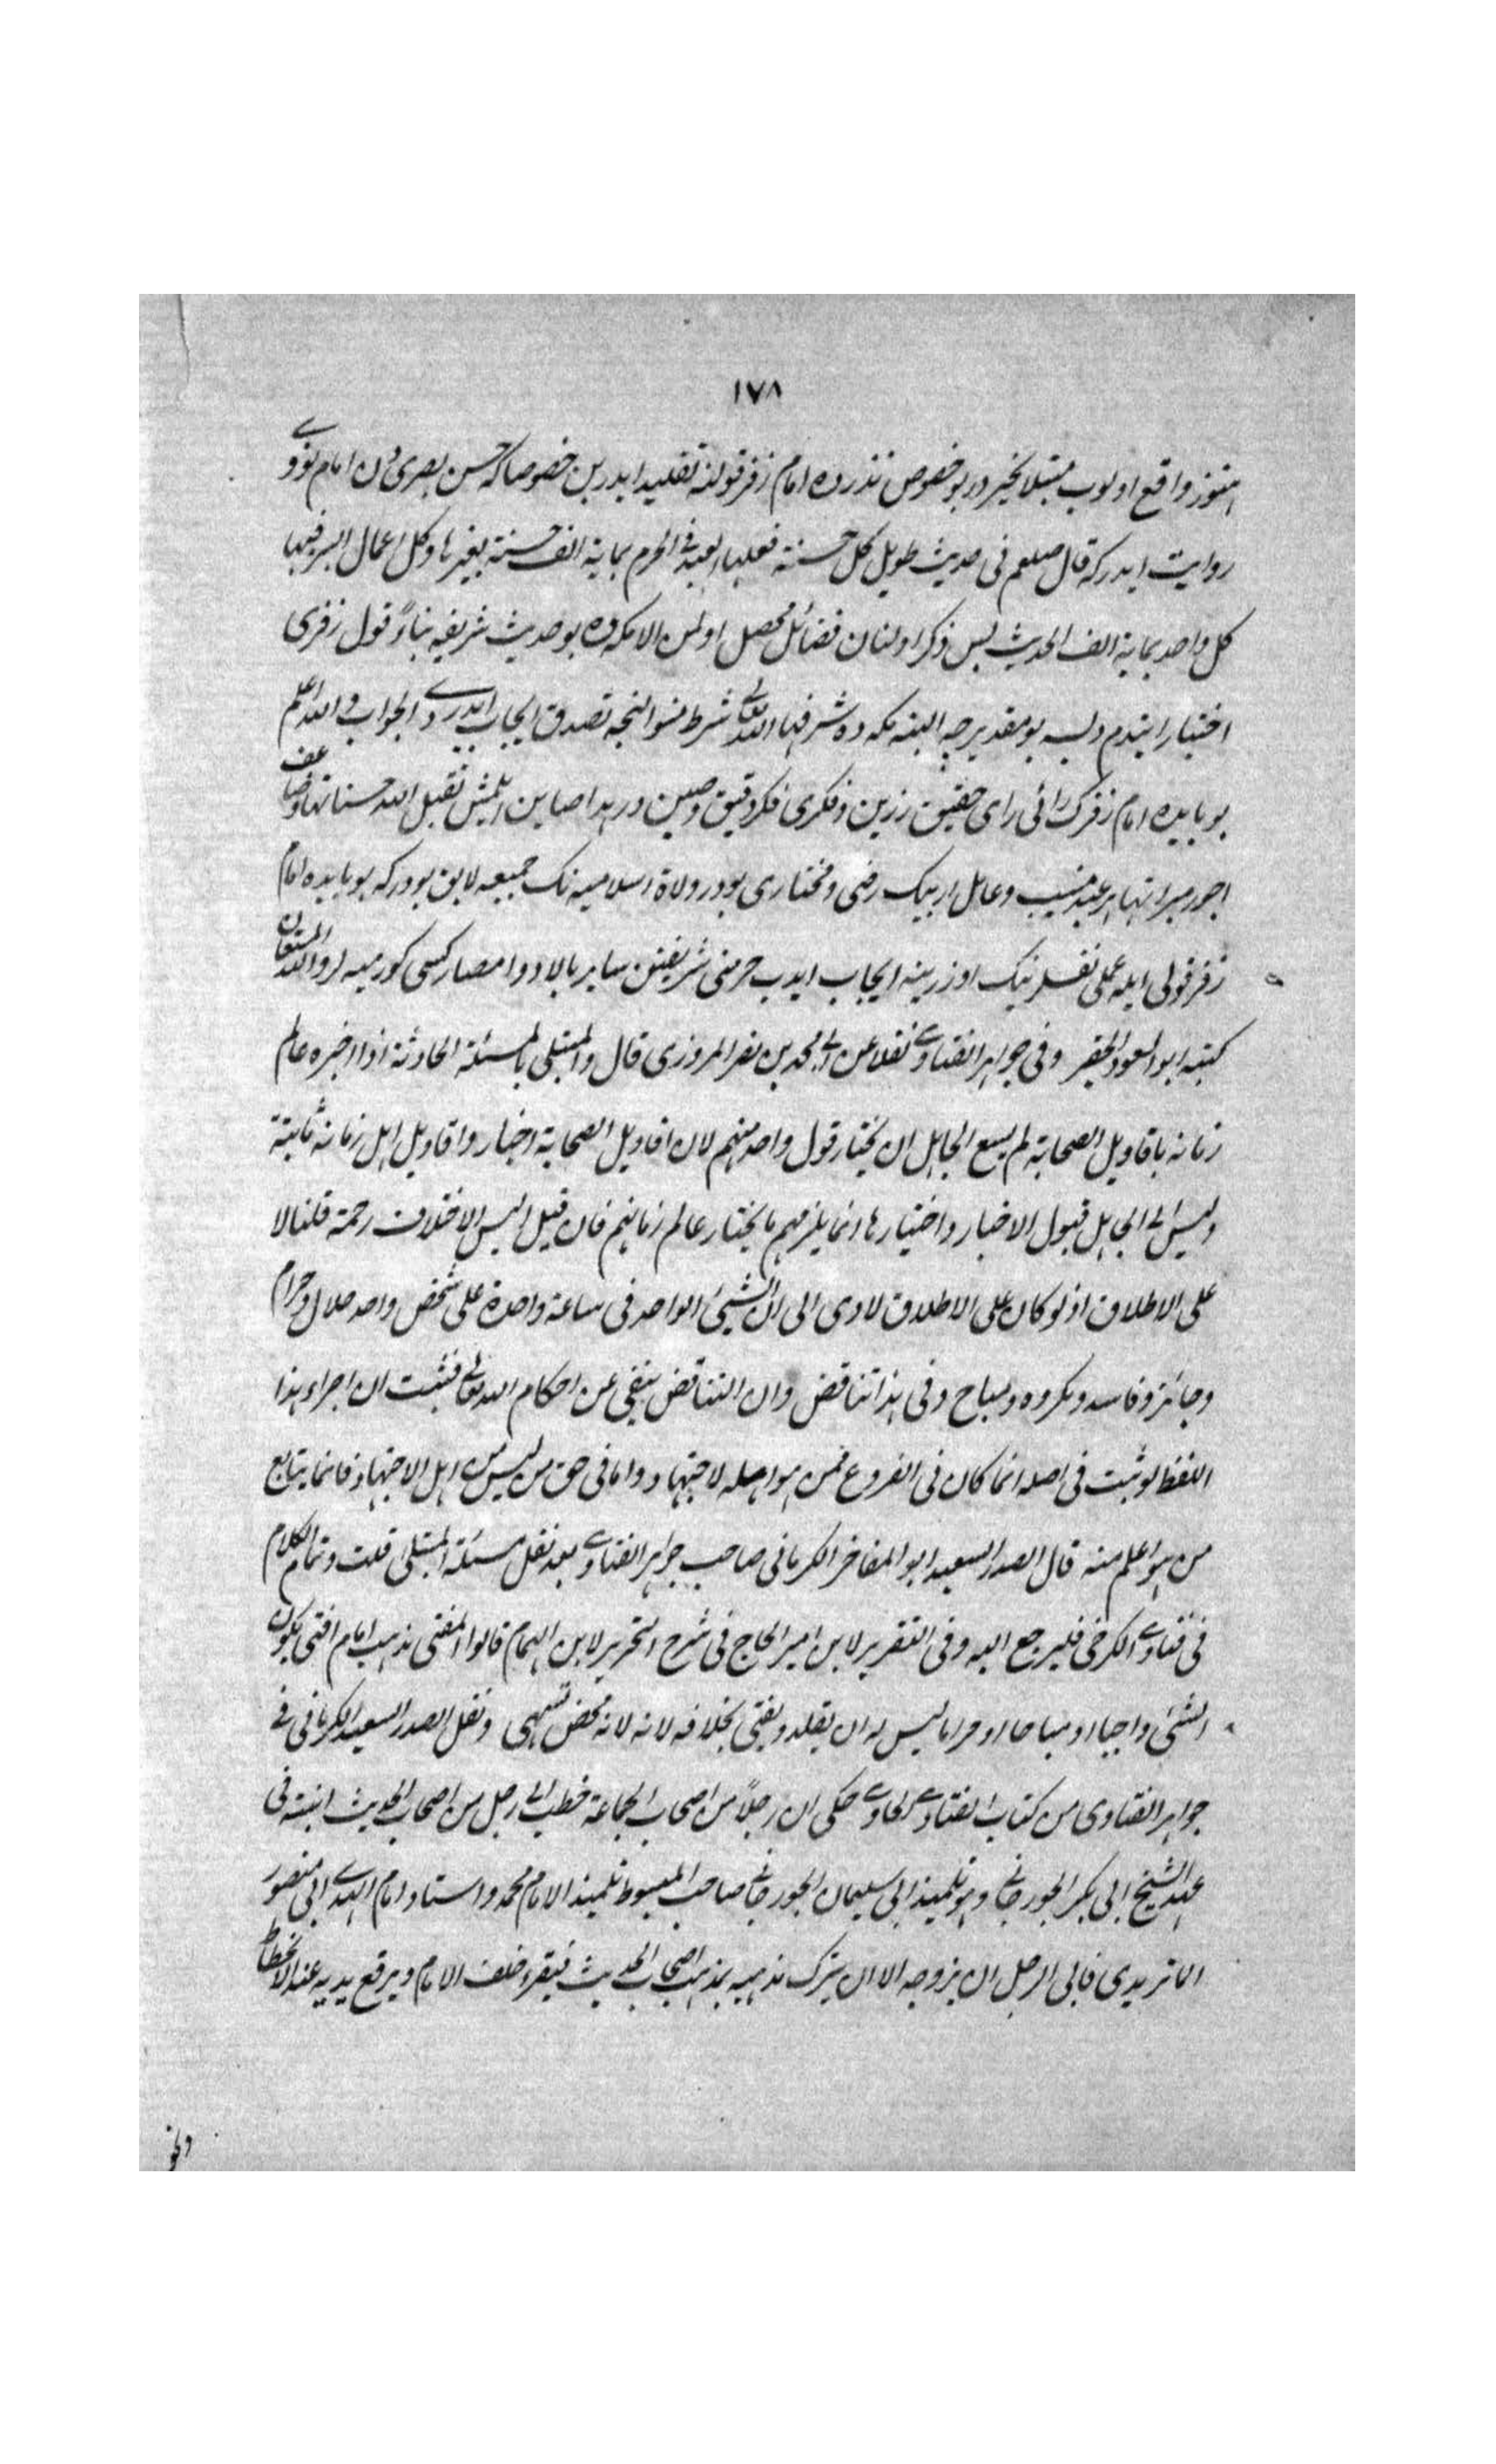 ١٧٨
واقع اولوب مبتلا مخيردر بو خصوص نذرده امام زفر قولنه تقليد ايدر بن خصوصا كه حسن بصرى دن امام نووى
روايت ايدر كه قال صلعم فى حديث طويل كل حسنة فعلها العبد فى الحرم بماية الف حسنة بغيرها وكل اعمال البر فيها
كل واحد بماية الف الحديث پس ذكر اولنان فضائل محصل اولمن الا مكه ده بو حديث شريفه بناءً قول زفرى
اختيار ايتدم ديسه بو مقدير جه البته مكه ده شرفها الله تعالى شرط نسوا لنجه تصدق ايجاب ايدر دى الجواب والله اعلم
بو بابده امام زفرك رائى راى حقيق رزين وفكرى فكر دقيق وصين در تقبل الله حسناتها وضاعف
اجور مبراتها هر عبد منيب وعامل رضى ومختارى بودر ولاة اسلاميه نك جميعه لايق بودر كه بو بابده امام
زفر قولى ايله عملى نفسلرينك اوزرينه ايجاب ايدب حرمين شريفين ساير بلاد وامصار كبى كورميه لر والله المستعان
كتبه ابو السعود الحقير وفى جواهر الفتاوى نقلا عن ابى محمد بن نصر المروزى قال والمبتلى بالمسئلة الحادثة اذا اخبره عالم
زمانه باقاويل الصحابة لم يسع الجاهل ان يختار قول واحد منهم لان اقاويل الصحابة اخبار واقاويل اهل زمانه ثابتة
وليس الى الجاهل قبول الاخبار واختيارها انما يلزمهم ما يختار عالم زمانهم فان قيل اليس الاختلاف رحمة قلنا لا
على الاطلاق اذ لو كان على الاطلاق لادى الى ان الشيئ الواحد فى ساعة واحدة على شخص واحد حلال وحرام
وجائز وفاسد ومكروه ومباح وفى هذا تناقض وان التناقض ينفي عن احكام الله تعالى فثبت ان اجراء هذا
اللفظ لو ثبت فى اصله انما كان فى الفروع ممن هو اهله لاجتهاد واما فى حق من ليس من اهل الاجتهاد فانما يتابع
من هو اعلم منه قال الصدر السعيد ابو المفاخر الكرمانى صاحب جواهر الفتاوى بعد نقل مسئلة المبتلى قلت وتمام الكلام
فى فتاوى الكرخى فليرجع اليه وفى التقرير لابن امير الحاج فى شرح التحرير لابن الهمام قالوا المفتى بمذهب امام افتى بكون
الشئ واجبا او مباحا او حراما ليس له ان يقلد ويفتى بخلافه لانه لانه محض تشهى ونقل الصدر السعيد الكرمانى فى
جواهر الفتاوى من كتاب الفتاوى الحاوى حكى ان رجلاً من اصحاب الجماعة خطب الى رجل من اصحاب الحديث ابنته فى
عهد الشيخ ابى بكر الجورجانى وهو تلميذ ابى سليمان الجورجانى صاحب المبسوط تلميذ الامام محمد واستاد امام الهدى ابى منصور
الماتريدى فابى الرجل ان يزوجه الا ان يترك مذهبه بمذهب اصحاب الحديث فيقرء خلف الامام ويرفع يديه عند الانحطاط